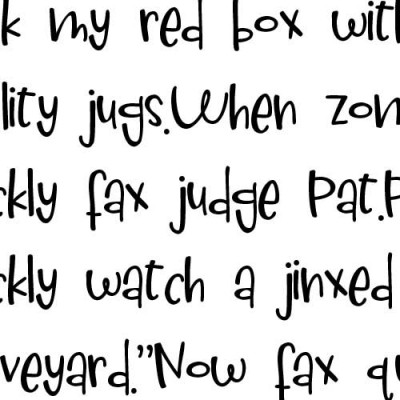 k my red box with
lity jugs.When zon
ckly fax judge Pat.P
ckly watch a jinxed
veyard.”Now fax qu